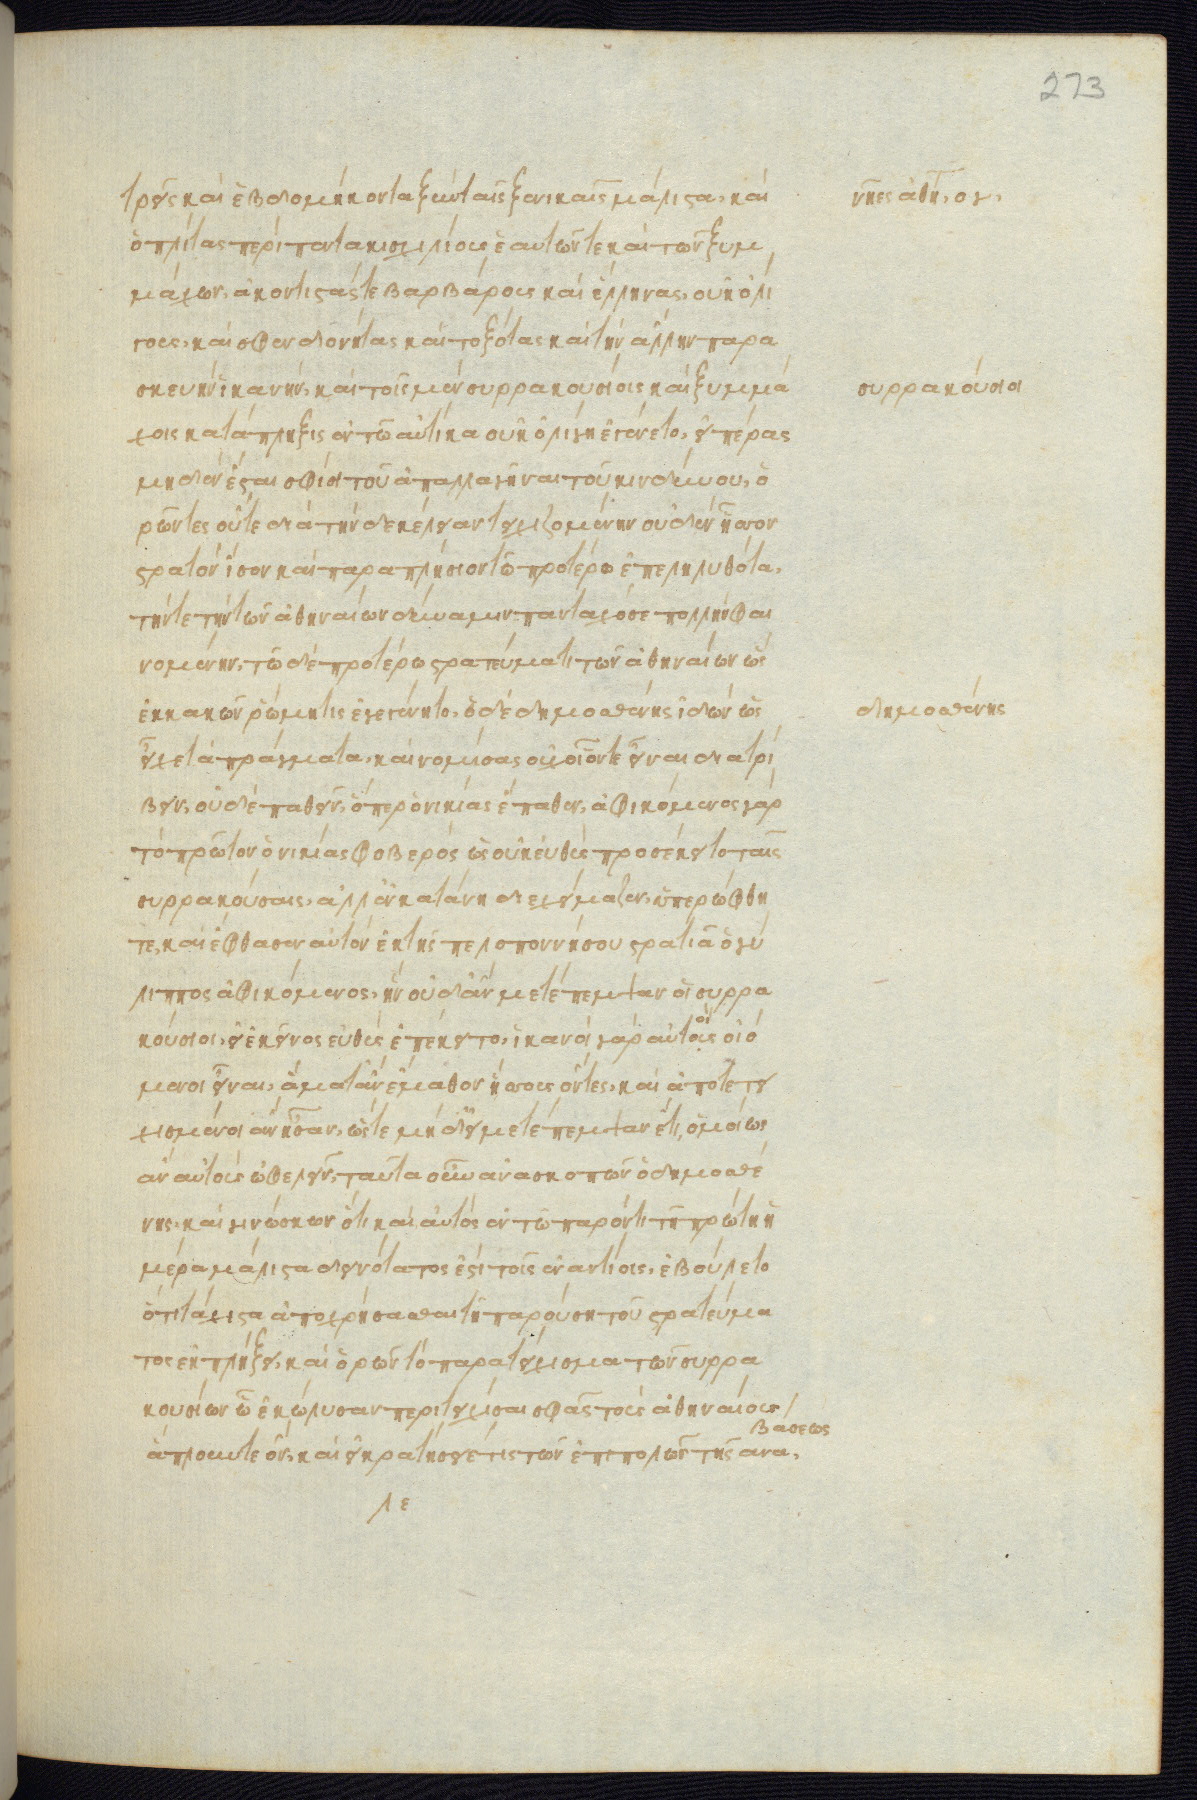 273
τρεῖς καὶ ἑβδομήκοντα ξὺν ταῖς ξενικαῖς μάλιστα, καὶ
νῆες ἀθη, ογ,
ὁπλίτας περὶ πεντακισχιλίους ἑαυτῶν τε καὶ τῶν ξυμ
μάχων, ἀκοντιστάς τε βαρβάρους καὶ ἕλληνας, οὐκ ὀλί
γους, καὶ σφενδονήτας καὶ τοξότας καὶ τὴν ἄλλην παρα
σκευὴν ἱκανήν, καὶ τοῖς μὲν συρρακουσίοις καὶ ξυμμά
συρρακούσιοι
χοις κατάπληξις ἐν τῶ αὐτίκα οὐκ ὀλίγη ἐγένετο, εἰ πέρας
μηδὲν ἔσται σφίσι τοῦ ἀπαλλαγῆναι τοῦ κινδύνου, ὁ
ρῶντες οὔτε διὰ τὴν δεκέλειαν τειχιζομένην οὐδὲν ἧσσον
στρατὸν ἴσον καὶ παραπλήσιον τῶ προτέρω ἐπεληλυθότα,
τήν τε τῶν ἀθηναίων δύναμιν πανταχόσε πολλὴν φαι
νομένην, τῶ δὲ προτέρω στρατεύματι τῶν ἀθηναίων ὡς
ἐκ κακῶν ῥώμη τις ἐγεγένητο, ὁ δὲ δημοσθένης ἰδὼν ὡς
δημοσθένης
εἶχε τὰ πράγματα, καὶ νομίσας οὐχ οἷόν τε εἶναι διατρί
βειν, οὐδὲ παθεῖν, ὅπερ ὁ νικίας ἔπαθεν, ἀφικόμενος γὰρ
τὸ πρῶτον ὁ νικίας φοβερός ὡς οὐκ εὐθὺς προσέκειτο ταῖς
συρρακούσαις, ἀλλ' ἐν κατάνη διεχείμαζεν, ὑπερώφθη
τε, καὶ ἔφθασεν αὐτὸν ἐκ τῆς πελοποννήσου στρατιᾶ ὁ γύ
λιππος ἀφικόμενος, ἣν οὐδ' ἂν μετέπεμψαν οἱ συρρα
κούσιοι, εἰ ἐκεῖνος εὐθὺς ἐπέκειτο, ἱκανοὶ γὰρ αὐτοὶ οἰό
μενοι εἶναι, ἅμα τ' ἂν ἔμαθον ἥσσους ὄντες, καὶ ἀποτετει
χισμένοι ἂν ἦσαν, ὥστε μηδ' εἰ μετέπεμψαν ἔτι, ὁμοίως
ἂν αὐτοὺς ὠφελεῖν, ταῦτα οὖν ἀνασκοπῶν ὁ δημοσθέ
νης, καὶ γινώσκων ὅτι καὶ αὐτὸς ἐν τῶ παρόντι τῆ πρώτη ἡ
μέρα μάλιστα δεινότατος ἐστὶ τοῖς ἐναντίοις, ἐβούλετο
ὅτι τάχιστα ἀποχρήσασθαι τῆ παρούση τοῦ στρατεύμα
τος ἐκπλήξει, καὶ ὁρῶν τὸ παρατείχισμα τῶν συρρα
κουσίων ὧ ἐκώλυσαν περιτειχίσαι σφᾶς τοὺς ἀθηναίους
ἁπλοῦν τε ὄν, καὶ εἰ κρατήσειέ τις τῶν ἐπιπολῶν τῆς ανα,
βάσεως
λε